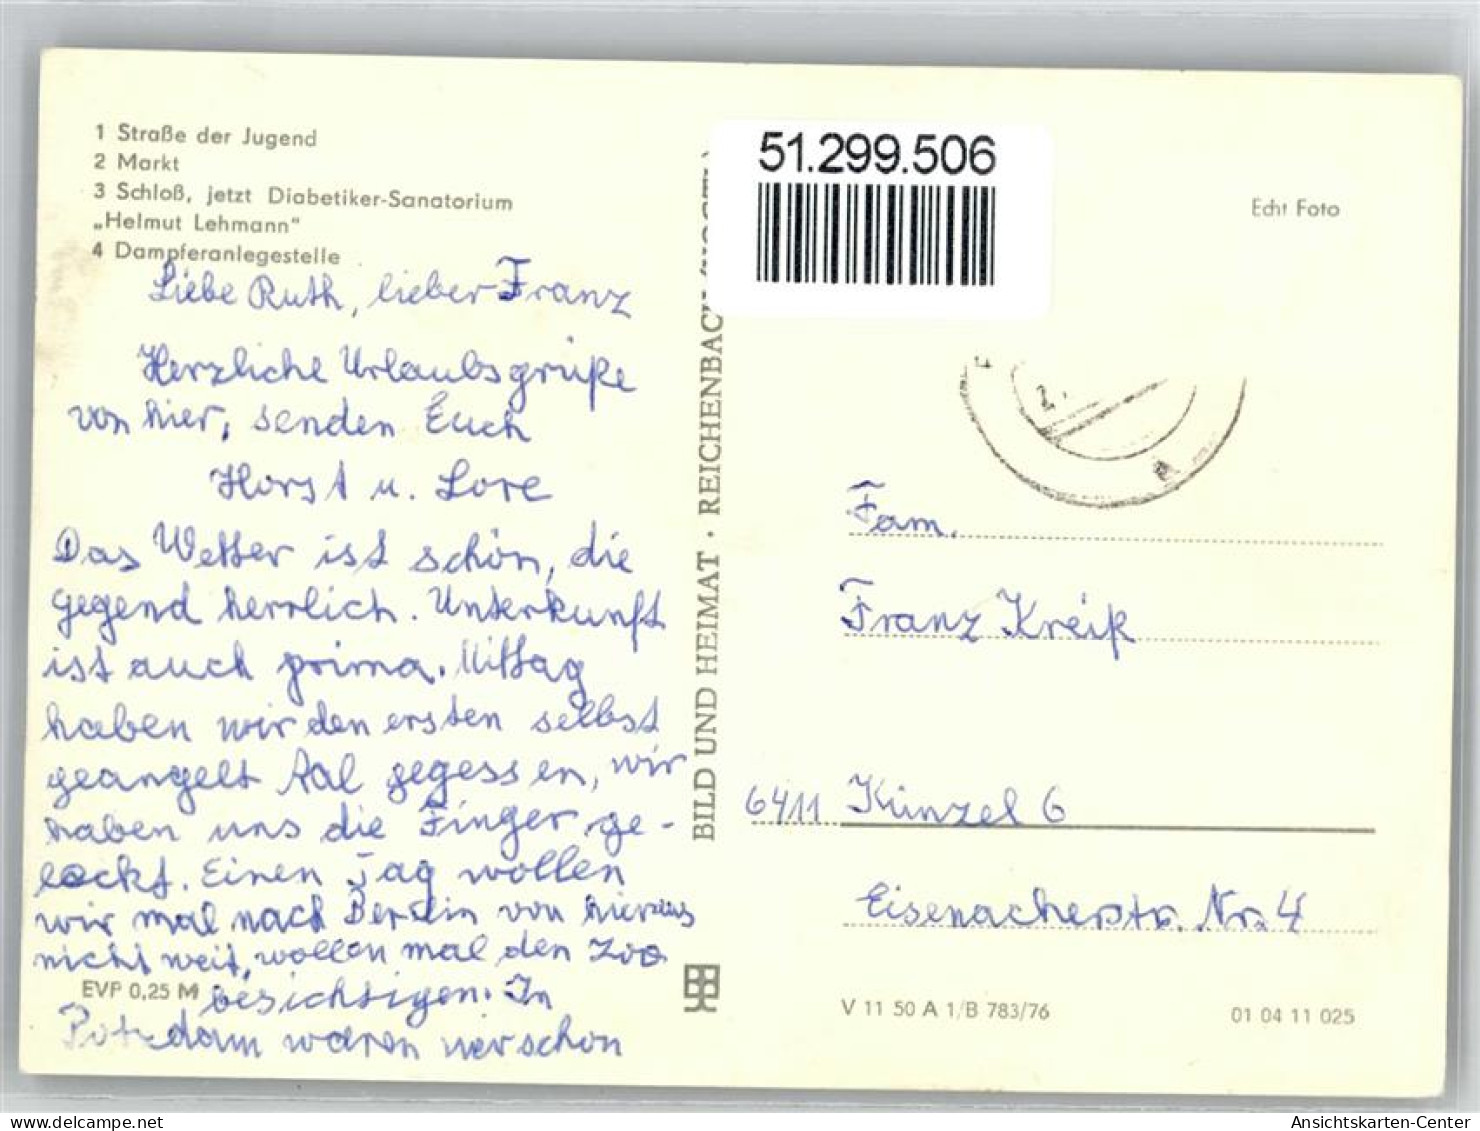 1 Straße der Jugend
2 Markt
3 Schloß, jetzt Diabetiker-Sanatorium
„Helmut Lehmann“
4 Dampferanlegestelle
Liebe Ruth, lieber Franz
Herzliche Urlaubsgrüße
von hier, senden Euch
Horst u. Lore
Das Wetter ist schön, die
Gegend herrlich. Unterkunft
ist auch prima. Mittag
haben wir den ersten selbst
geangelt Aal gegessen, wir
haben uns die Finger ge-
leckt. Einen Tag wollen
wir mal nach Berlin von hier aus
nicht weit, wollen mal den Zoo
EVP 0,25 M besichtigen. In
Potsdam waren wir schon
BILD UND HEIMAT · REICHENBACH
51.299.506
Echt Foto
Fam.
Franz Kreiß
6411 Künzel 6
Eisenacherstr. Nr. 4
V 11 50 A 1/B 783/76
01 04 11 025
Ansichtskarten-Center